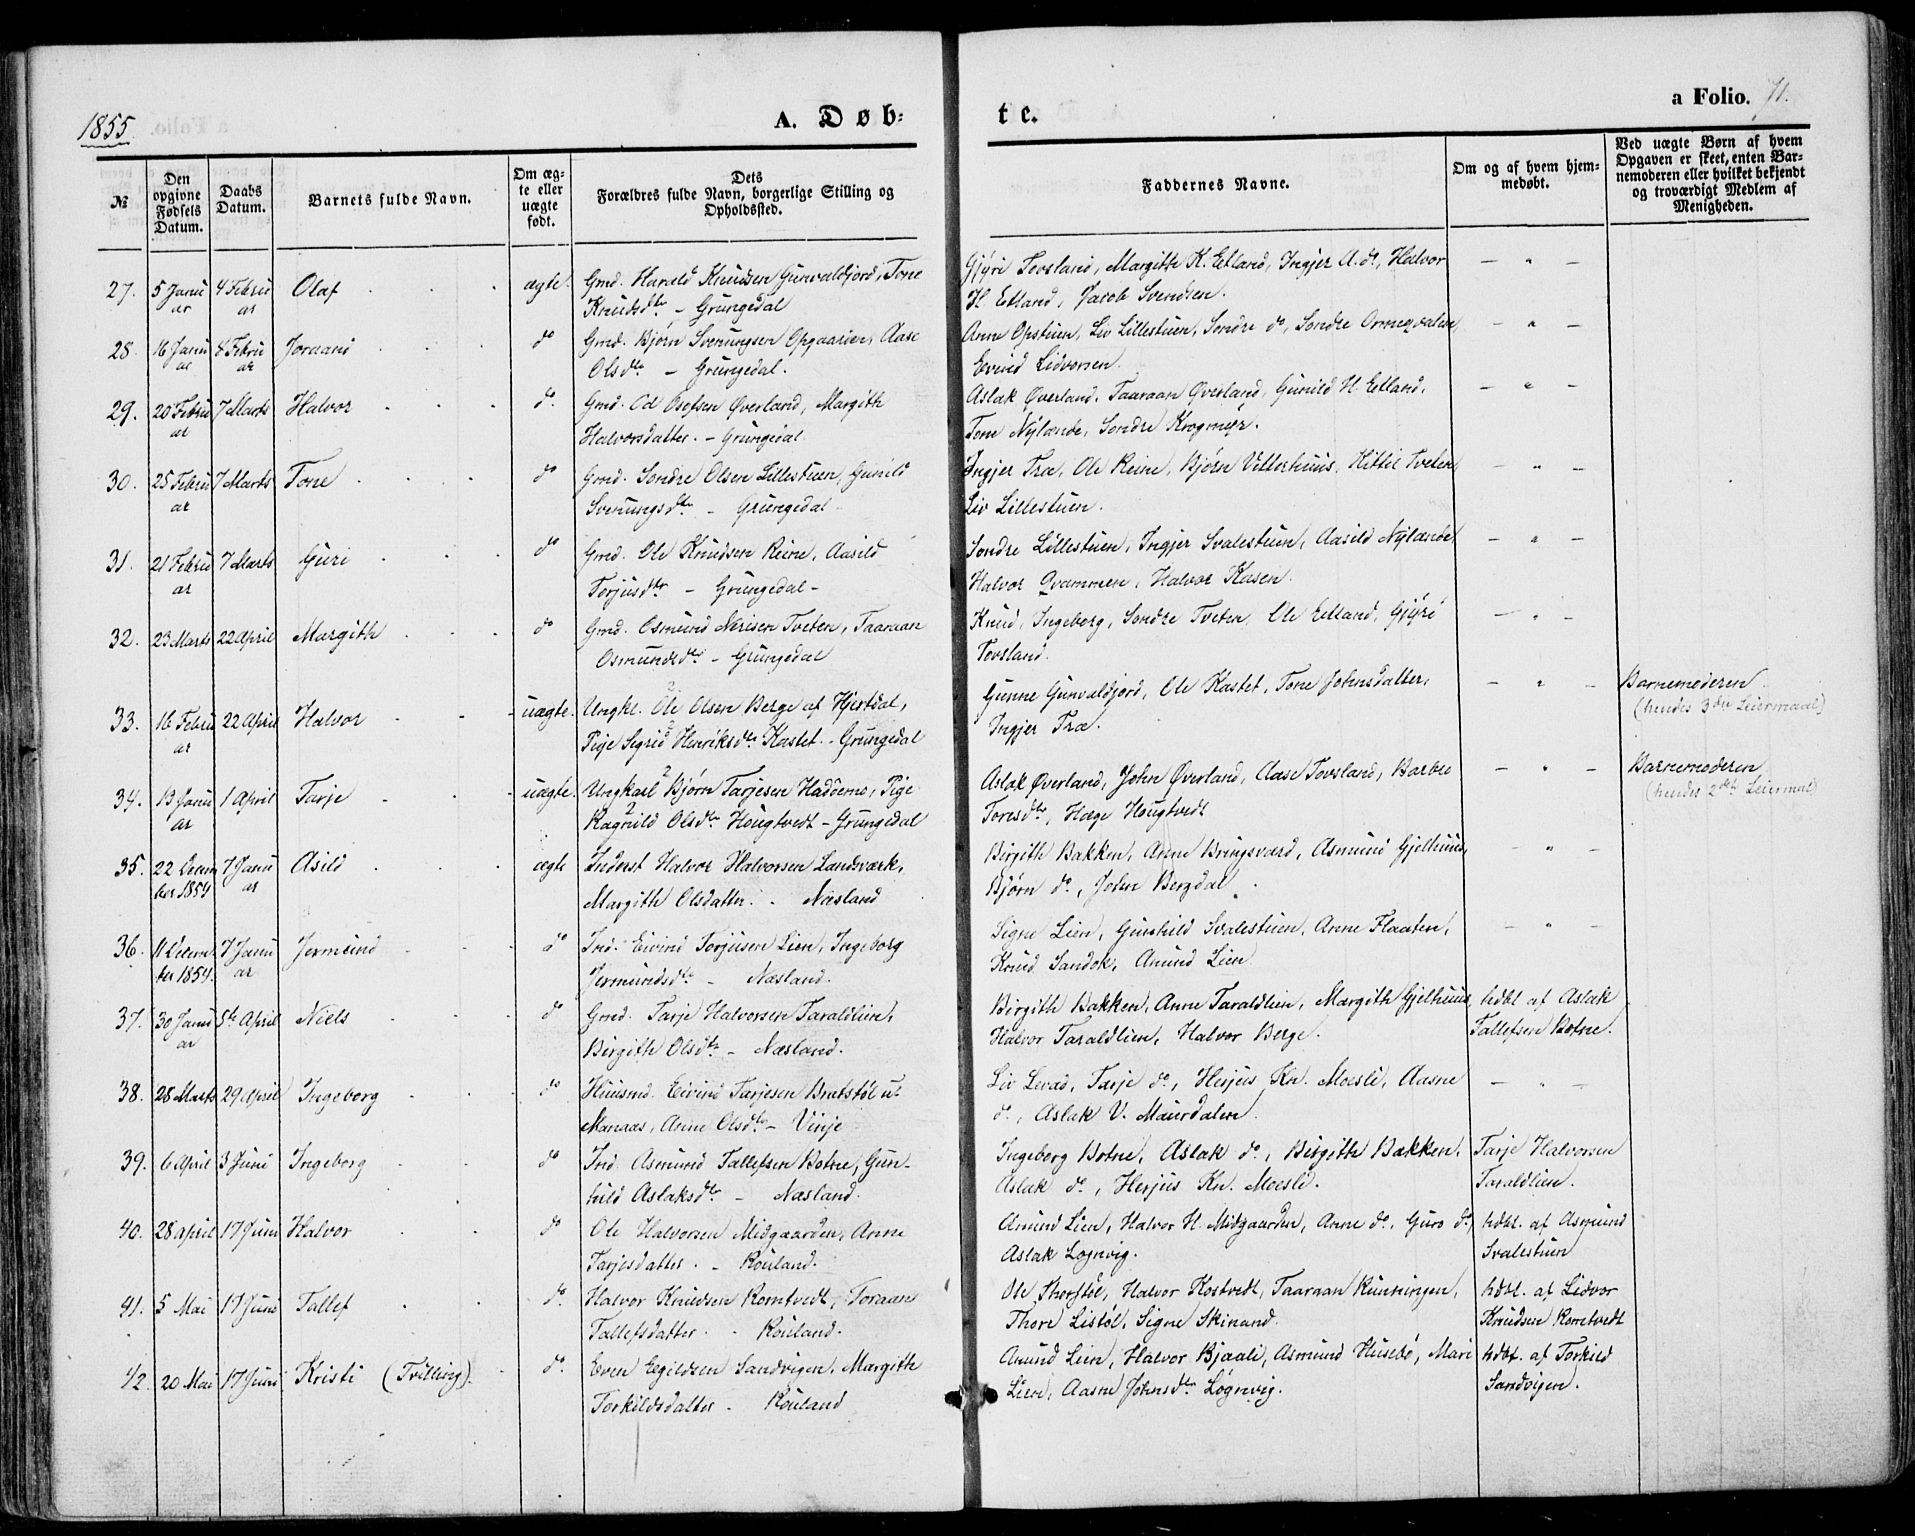 1855.
A. Døb-
te.
a Folio. 71.
№
Den opgivne Fødsels Datum.
Daabs Datum.
Barnets fulde Navn.
Om ægte eller uægte født.
Dets Forældres fulde Navn, borgerlige Stilling og Opholdssted.
Faddernes Navne.
Om og af hvem hjemmedøbt.
Ved uægte Børn af hvem Opgaven er skeet, enten Barnemoderen eller hvilket bekjendt og troværdigt Medlem af Menigheden.
27. 5 Januar 4 Februar Olaf ægte. Gmd. Harald Knudsen Gunvaldjord, Tone
Knudsdtr – Grungedal
Gjyri Tovsland, Margith K. Edland, Ingjer A. do, Halvor
H Edland, Jacob Svendsen.
28. 16 Januar 4 Februar Joraand do Gmd. Bjørn Svenungsen Opgaarden, Aase
Olsdtr – Grungedal.
Anne Opstuen, Liv Lillestuen, Sondre do, Sondre Ormeqvalen
Eivind Lidvorsen.
29. 20 Februar 7 Marts Halvor do. Gmd. Od Olefsen Øverland, Margith
Halvorsdatter. – Grungedal
Aslak Øverland, Taaraan Øverland, Gunild H. Edland,
Tone Nylænde, Sondre Krogmyr.
30. 25 Februar 7 Marts Tone do Gmd. Sondre Olsen Lillestuen, Gunild
Svenungsdtr – Grungedal
Ingjer Træ, Ole Reine, Bjørn Villerhuus, Kittil Tveten,
Liv Lillestuen.
31. 21 Februar 7 Marts Guri do Gmd. Ole Knudsen Reine, Aasild
Torjusdtr – Grungedal –
Sondre Lillestuen, Ingjer Svalestuen, Aasild Nylænde
Halvor Qvammen, Halvor Kasen.
32. 23 Marts 22 April Margith do Gmd. Osmund Nerisen Tveten, Taaraan
Osmundsdtr – Grungedal
Knud, Ingeborg, Sondre Tveten, Ole Edland, Gjyri
Tovsland.
33. 16 Februar 22 April Halvor uægte. Ungkl. Ole Olsen Berge af Hjertdal,
Pige Sigrid Henriksdtr Kastet. – Grungedal
Gunne Gunvaldjord, Ole Kastet, Tone Johnsdatter,
Ingjer Træ.
Barnemoderen
(hendes 3die Leiermaal)
34. 13 Januar 1 April Tarje uægte. Ungkarl Bjørn Tarjesen Haddemo, Pige
Ragnild Olsdtr Hougtvedt – Grungedal
Aslak Øverland, John Øverland, Aase Tovsland, Barbro
Toresdtr, Hæge Hougtvedt
Barnemoderen
(hendes 2det Leiermal)
35. 22 December 1854 7 Januar Asild ægte Inderst Halvor Halvorsen Landsværk,
Margith Olsdatter. Næsland
Birgith Bakken, Anne Bringsværd, Asmund Gjelhuus,
Bjørn do, John Bergdal
36. 11 December 1854. 7 Januar Jermund do Ind. Eivind Torjusen Lien, Ingeborg
Jermundsdtr – Næsland.
Signe Lien, Gunhild Svalestuen, Anne Flaaten,
Knud Sandok, Amund Lien
37. 30 Januar 5te April Niels do Gmd. Tarje Halvorsen Taraldlien,
Birgith Olsdtr – Næsland.
Birgith Bakken, Anne Taraldlien, Margith Gjelhuus,
Halvor Taraldlien, Halvor Berge.
hdbt af Aslak
Tallefsen Botne.
38. 28 Marts 29 April Ingeborg do Huusmd. Eivind Tarjesen Bratstøl u:
Manaas, Anne Olsdtr – Vinje
Liv Levad, Tarje do, Herjus Kn. Moesli, Aasne
do, Aslak V. Maurdalen.
39. 6 April 3 Juni Ingeborg do Ind. Asmund Tallefsen Botne, Gun-
hild Aslaksdtr – Næsland.
Ingeborg Botne, Aslak do, Birgith Bakken,
Aslak do, Herjus Kn. Moesli.
Tarje Halvorsen
Taraldlien.
40. 28 April 17 Juni Halvor do Ole Halvorsen Midgaarden, Anne
Tarjesdatter. – Rouland.
Amund Lien, Halvor H. Midgaarden, Anne do, Guro do,
Aslak Lognvig.
hdbt. af Asmund
Svalestuen
41. 5 Mai 17 Juni Tallef do. Halvor Knudsen Romtvedt, Toraan
Tallefsdatter. – Rouland.
Ole Thorstøl, Halvor Kostvedt, Taaraan Kunningen,
Thore Listøl, Signe Skinand.
hdbt. af Lidvor
Knudsen Romtvedt
42. 20 Mai 17 Juni Kristi (Tvilling). do. Even Egildsen Sandvigen, Margith
Torkildsdatter – Rouland
Amund Lien, Halvor Bjaali, Asmund Husebø, Mari
Lien, Aasne Johnsdtr Løgnvig.
hdbt. af Torkild
Sandvigen.